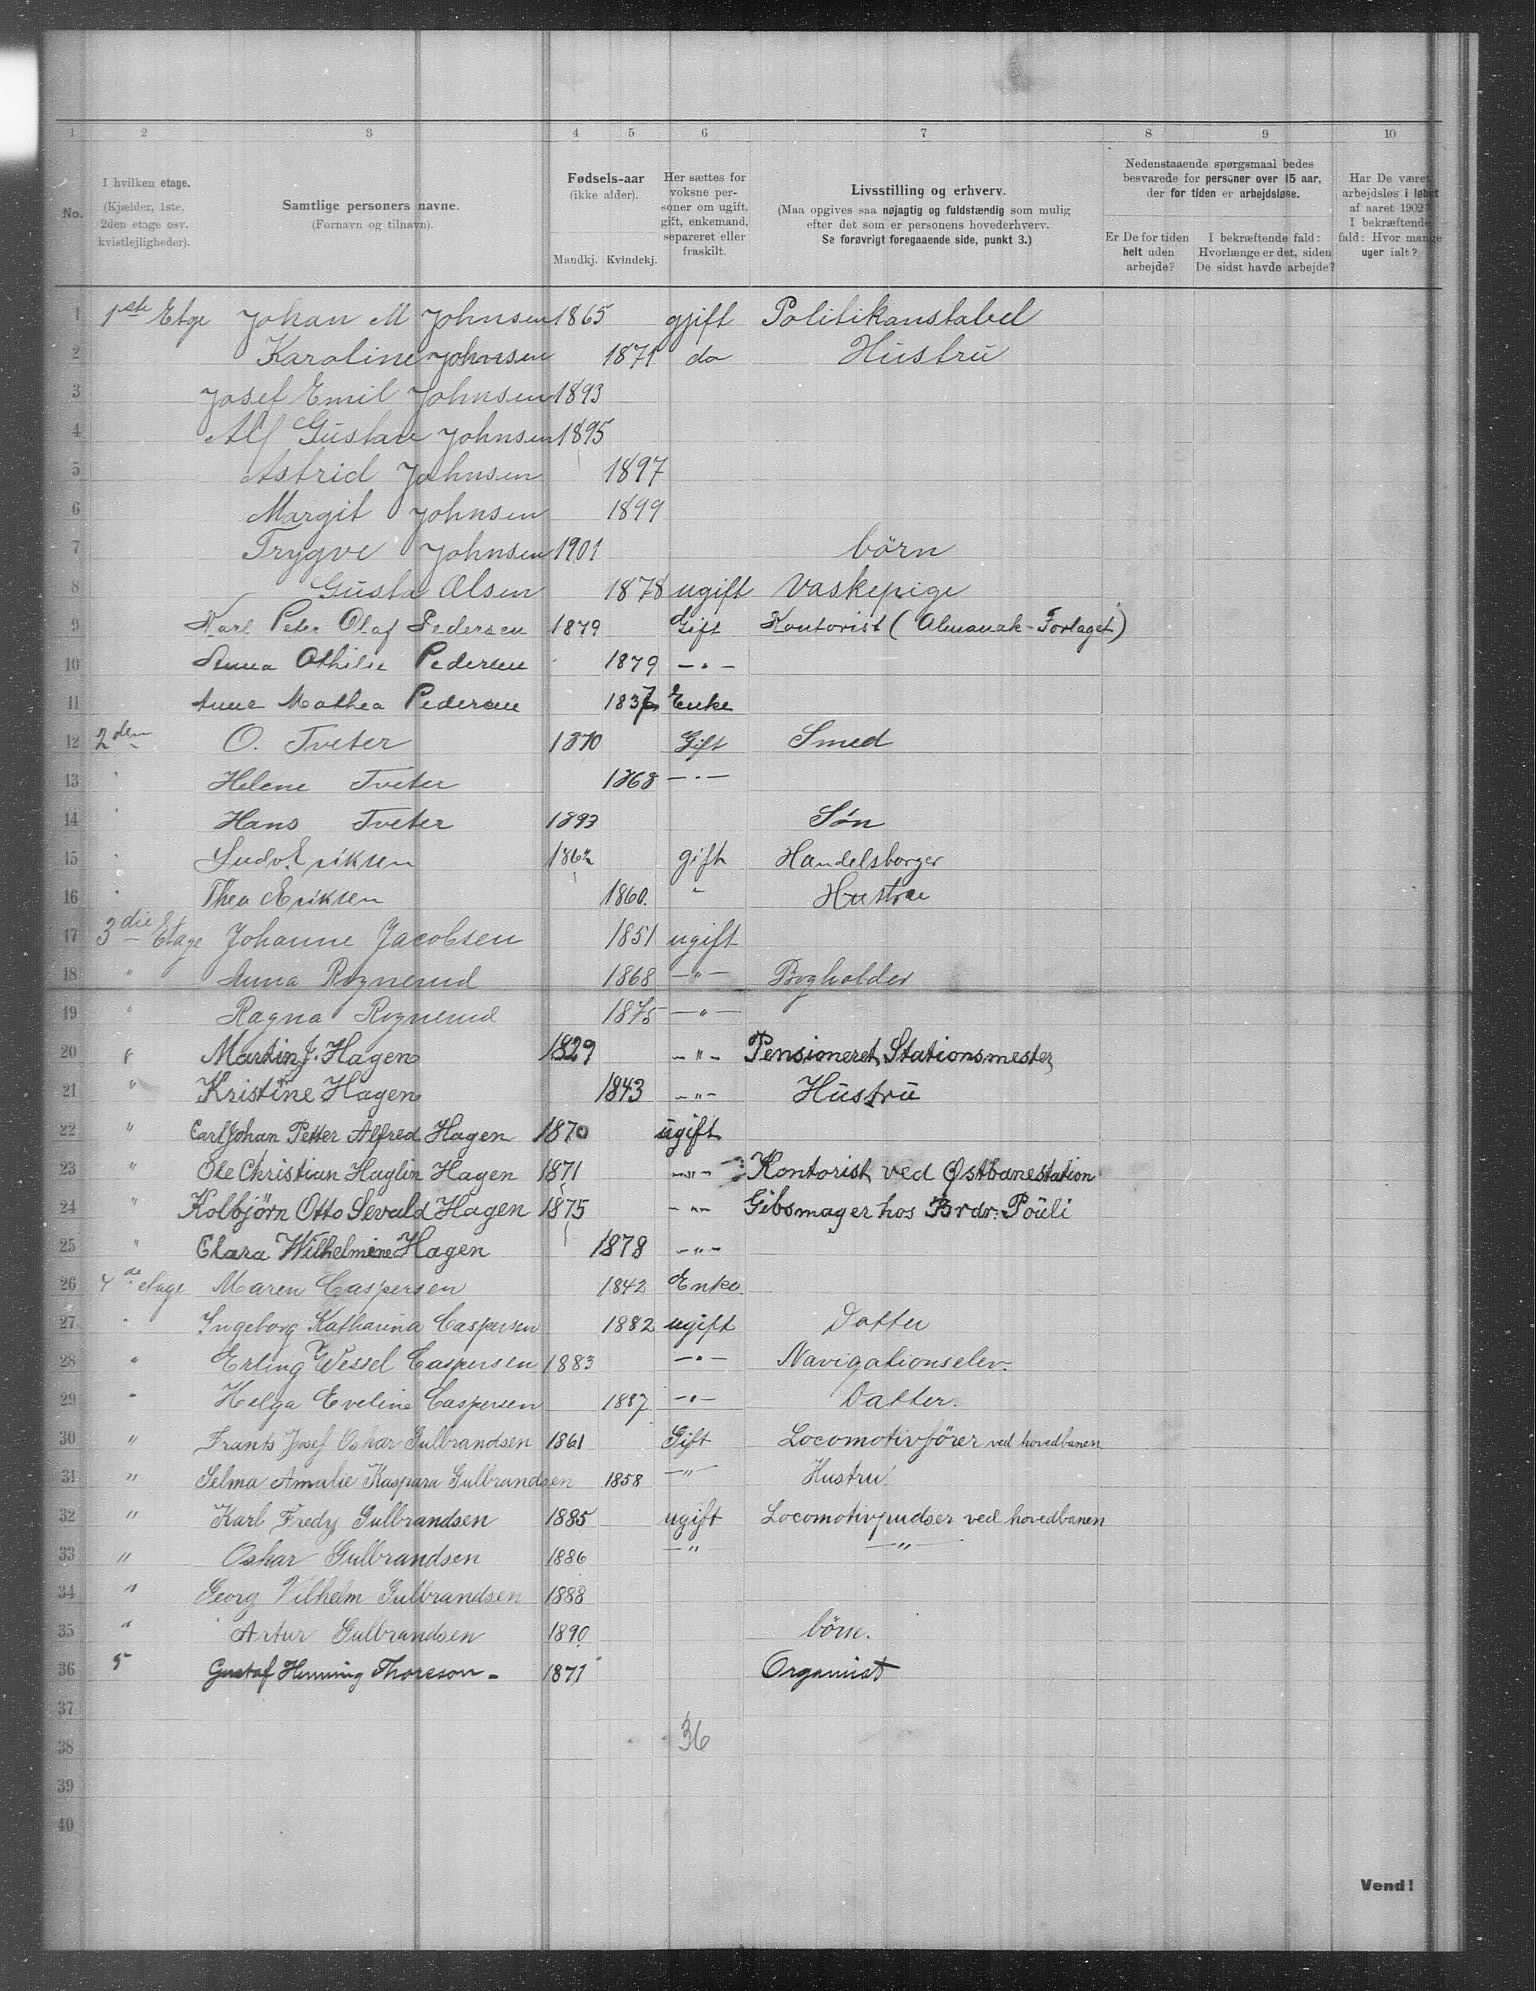 1 2 3 4 5 6 7 8 9 10
No.
I hvilken etage.
(Kjælder, 1ste,
2den etage osv.
kvistlejligheder).
Samtlige personers navne.
(Fornavn og tilnavn).
Fødsels-aar
(ikke alder).
Mandkj. Kvindekj.
Her sættes for
voksne per-
soner om ugift,
gift, enkemand,
separeret eller
fraskilt.
Livsstilling og erhverv.
(Maa opgives saa nøjagtig og fuldstændig som mulig
efter det som er personens hovederhverv.
Se forøvrigt foregaaende side, punkt 3.)
Nedenstaaende spørgsmaal bedes
besvarede for personer over 15 aar,
der for tiden er arbejdsløse.
Er De for tiden
helt uden
arbejde?
I bekræftende fald:
Hvorlænge er det, siden
De sidst havde arbejde?
Har De været
arbejdsløs i løbet
af aaret 1902?
I bekræftende
fald: Hvor mange
uger ialt?
1 1ste Etge Johan M Johnsen 1865 gjift Politikonstabel
2 Karoline Johnsen 1871 do Hustru
3 Josef Emil Johnsen 1893
4 Alf Gustav Johnsen 1895
5 Astrid Johnsen 1897
6 Margit Johnsen 1899
7 Trygve Johnsen 1901 börn
8 Gusta Olsen 1878 ugift Vaskepige
9 Karl Peter Olaf Pedersen 1879 Gift Kontorist (Almanak-Forlaget)
10 Anna Othilie Pedersen 1879 — " —
11 Anne Mathea Pedersen 1837 Enke
12 2den O. Tveter 1870 Gift Smed
13 " Helene Tveter 1868 — " —
14 " Hans Tveter 1893 Søn
15 " Ludv. Eriksen gift Handelsborger
16 " Thea Eriksen 1860. " Hustrue
17 3die Etage Johanne Jacobsen 1851 ugift
18 " Anna Rognerud 1868 — " — Bogholder
19 " Ragna Rognerud 1875 — " —
20 " Martin J. Hagen 1829 — " — Pensioneret Stationsmester
21 " Kristine Hagen 1843 — " — Hustru
22 " Carl Johan Petter Alfred Hagen 1870 ugift
23 " Ole Christian Haglin Hagen 1871 — " — Kontorist ved Østbanestation
24 " Kolbjörn Otto Sevald Hagen 1875 — " — Gibsmager hos Brdr. Pöuli
25 " Clara Wilhelmine Hagen 1878 — " —
26 4de etage Maren Caspersen 1842 Enke
27 " Ingeborg Katharina Caspersen 1882 ugift Datter
28 " Erling Wessel Caspersen 1883 — " — Navigationselev.
29 " Helga Eveline Caspersen 1887 — " — Datter.
30 " Frants Josef Oskar Gulbrandsen 1861 Gift Locomotivförer ved hovedbanen
31 " Selma Amalie Kaspara Gulbrandsen 1858 — " — Hustru.
32 " Karl Fredy Gulbrandsen 1885 ugift Locomotivpudser ved hovedbanen
33 " Oskar Gulbrandsen 1886 — " — — " —
34 " Georg Vilhelm Gulbrandsen 1888
35 " Artur Gulbrandsen 1890 börn.
36 5 Gustaf Henning Thoreson - 1871 Organist
37
38 36
39
40
Vend!